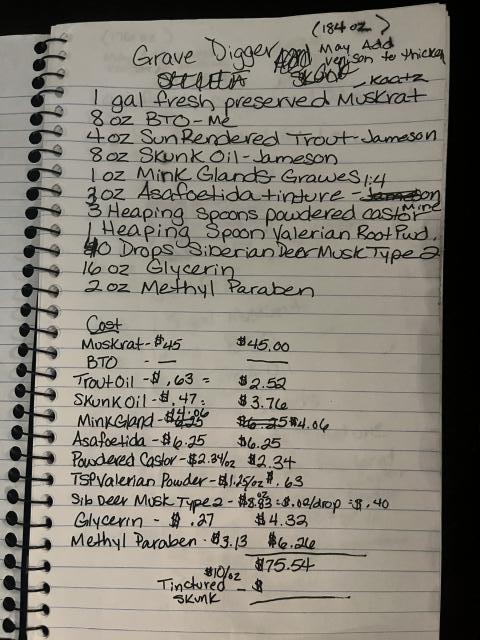 (184 oz)
Grave Digger Add May Add
venison to thicken
Skunk - Kaatz
1 gal fresh preserved Muskrat
8 oz BTO - Me
4 oz Sun Rendered Trout - Jameson
8 oz Skunk Oil - Jameson
1 oz Mink Glands - Grawes 1:4
2 oz Asafoetida tinture - Jameson Mine
3 Heaping spoons powdered castor
1 Heaping Spoon Valerian Root Pwd.
40 Drops Siberian Deer Musk Type 2
16 oz Glycerin
2 oz Methyl Paraben
Cost
Muskrat - $45 $45.00
BTO - — —
Trout Oil - $ .63 = $2.52
Skunk Oil - $ .47 = $3.76
Mink Gland - $6.25 $4.06 $6.25 $4.06
Asafoetida - $6.25 $6.25
Powdered Castor - $2.34/oz $2.34
TSP Valerian Powder - $1.25/oz $.63
Sib Deer Musk Type 2 - $8.83 oz = $.01/drop = $.40
Glycerin - $ .27 $4.32
Methyl Paraben - $3.13 $6.26
$75.54
$10/oz
Tinctured - $
Skunk